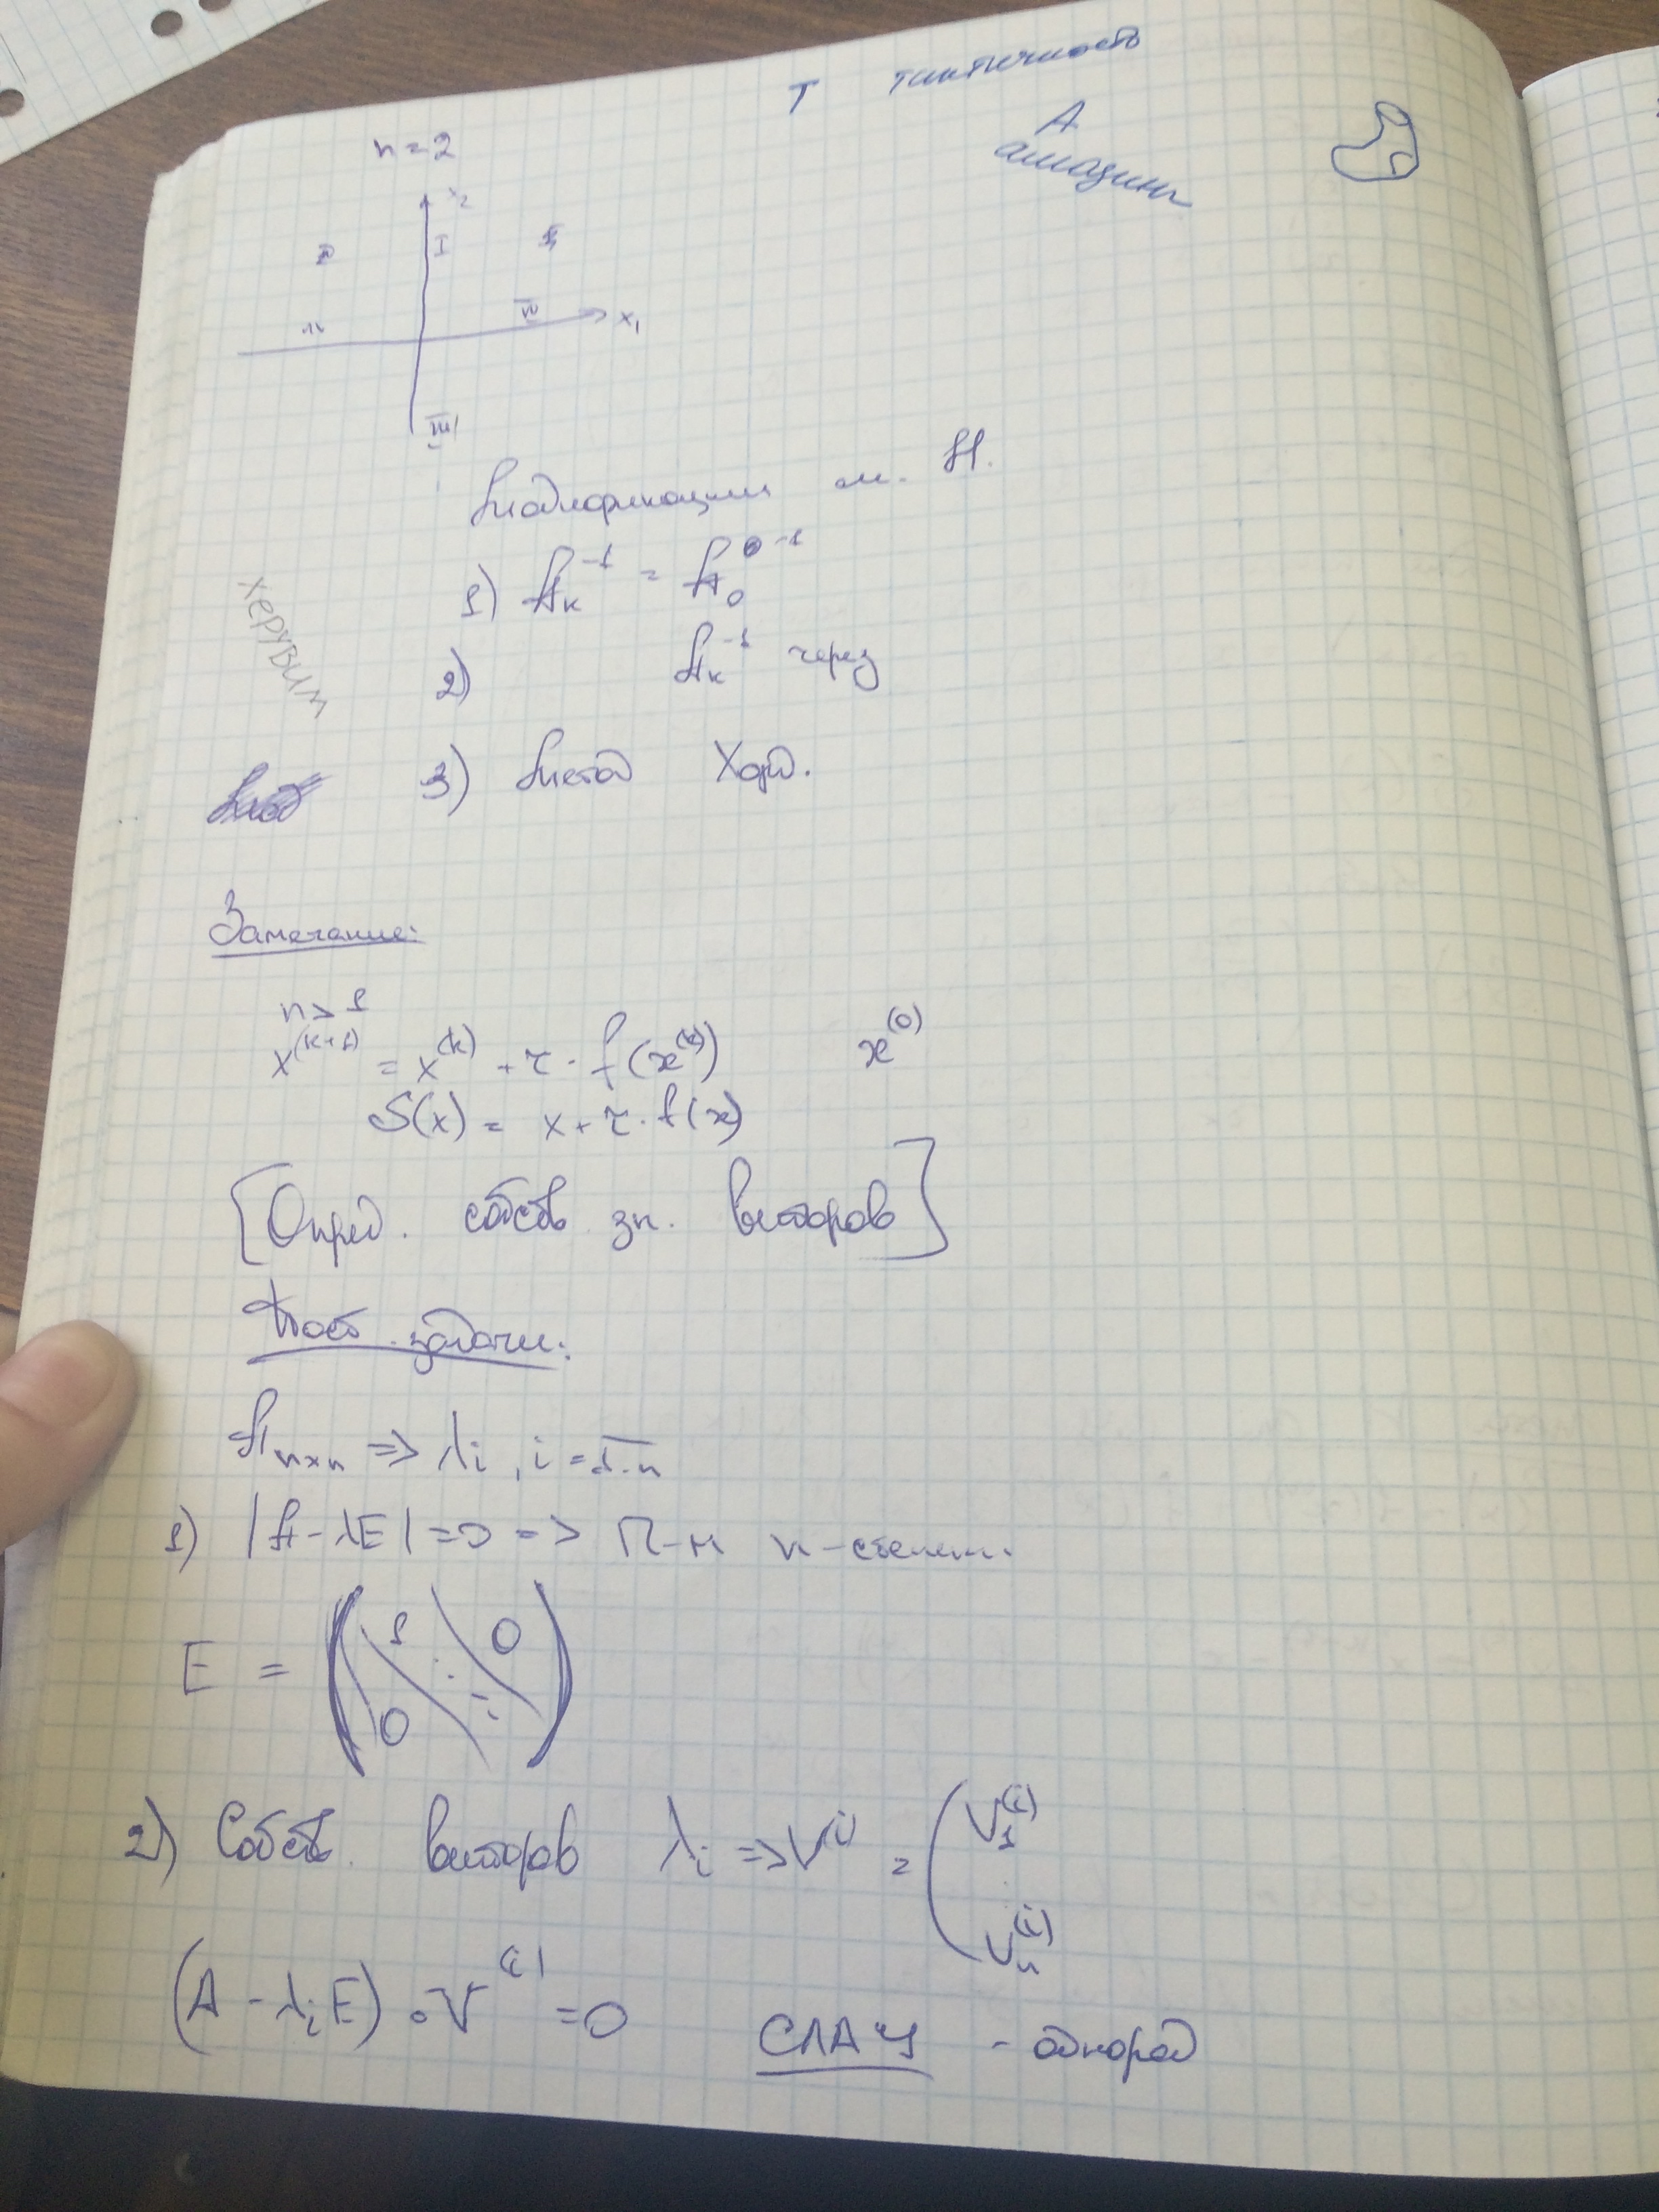 Т тактичность
А
амазинг
n = 2
x₂
I
IV
x₁
III
Модификации м. Н.
1) Aₖ⁻¹ = A₀⁻¹
херувим
2) Aₖ⁻¹ через
3) Метод Хорд.
Замечание:
n > 1
x⁽ᵏ⁺¹⁾ = x⁽ᵏ⁾ + τ · f(x⁽ᵏ⁾) x⁽⁰⁾
S(x) = x + τ · f(x)
[Опред. собств зн. векторов]
Пост. задачи:
Aₙₓₙ => λᵢ, i = 1..n
1) |A - λE| = 0 => П-м n-степен.
E = ( 1 0 0 )
2) Собств. векторов λᵢ => Vⁱ⁾ = ( V₁⁽ⁱ⁾
Vₙ⁽ⁱ⁾
(A - λᵢE) · V⁽ⁱ⁾ = 0 СЛАУ - однород